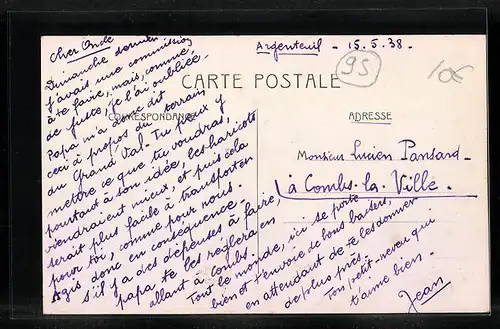 Argenteuil - 15.5.38 -
95
10€
CARTE POSTALE
CORRESPONDANCE
ADRESSE
Monsieur Lucien Pansard
à Combs-la-Ville.
Cher Oncle
Dimanche dernier
j'avais une commission
à te faire, mais, comme
de juste, je l'ai oubliée.
Papa m'a donc dit
ceci à propos du terrain
du Grand Val. Tu peux y
mettre ce que tu voudras,
pourtant à son idée, les haricots
viendraient mieux, et puis cela
serait plus facile à transporter
pour toi, comme pour nous.
Agis donc en conséquence.
s'il y a des dépenses à faire,
papa te les réglera en
allant à Combs.
Tout le monde, ici se porte
bien et t'envoie de bons baisers,
en attendant de te les donner
de plus près.
Ton petit-neveu qui
t'aime bien.
Jean